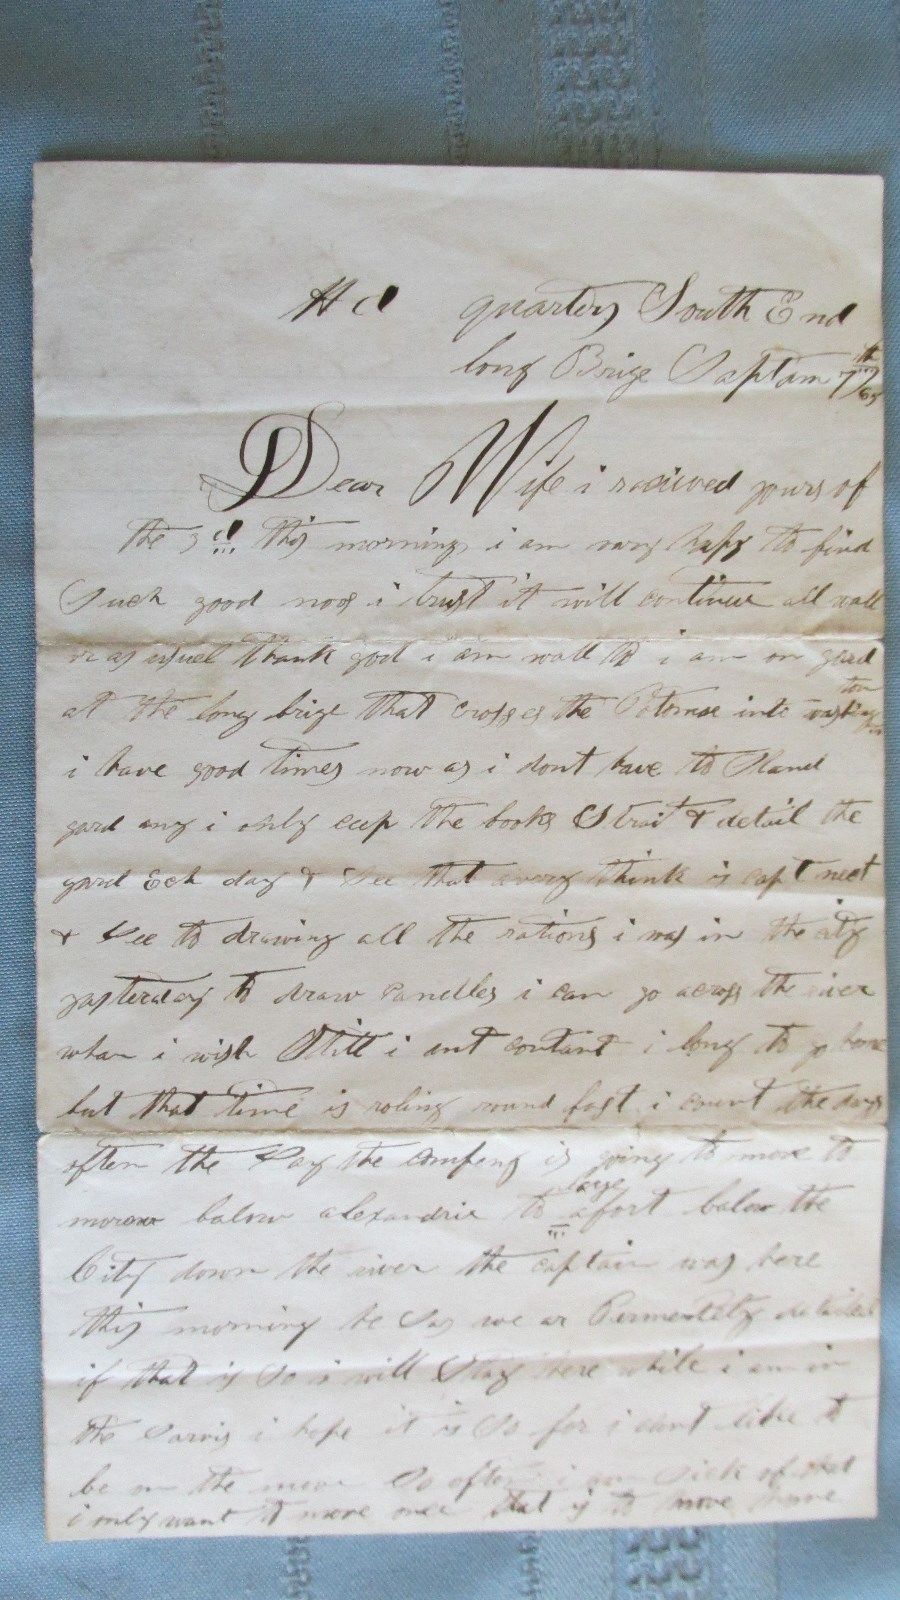 Hd quarters South End
long Brige Saptam 7th /65
Dear Wife i recieved yours of
the 3d this morning i am vary hapy to find
Such good noos i trust it will continue all wall
as usuel thank god i am wall to i am on gard
at the long brige that crosses the Potomac into washington
i have good times now as i dont have to Stand
gard any i only ceep the books Strait & detail the
gard Ech day & See that every think is capt neet
& See to drawing all the rations i was in the city
yasterday to draw candles i can go across the river
whan i wish Still i ant contant i long to go home
but that time is roling round fast i count the days
often the Say the company is going to move to
morow balow alexandria to a large fort balow the
City down the river the captain was here
this morning he Say we ar Permently detailed
if that is So i will Stay here while i am in
the Sarvis i hope it is So for i dont like to
be on the move So often i am Sick of that
i only want to move once that is to move home